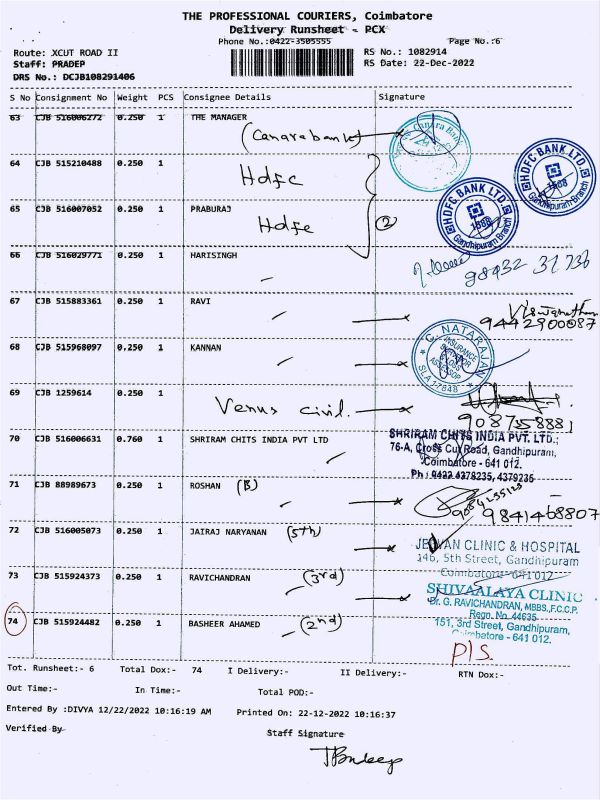 THE PROFESSIONAL COURIERS, Coimbatore
Delivery Runsheet - PCX
Phone No.:0422-3505555 Page No.:6
Route: XCUT ROAD II RS No.: 1082914
Staff: PRADEP RS Date: 22-Dec-2022
DRS No.: DCJB108291406
S No Consignment No Weight PCS Consignee Details Signature
63 CJB 516006272 0.250 1 THE MANAGER
(Canara bank) Canara Bank
64 CJB 515210488 0.250 1
Hdfc
HDFC BANK LTD. 1588 Gandhipuram Branch
HDFC BANK LTD. 1588 Gandhipuram Branch
65 CJB 516007052 0.250 1 PRABURAJ
Hdfc 2
66 CJB 516029771 0.250 1 HARISINGH
98432 31736
67 CJB 515883361 0.250 1 RAVI
Viswanathan
9442900087
68 CJB 515968097 0.250 1 KANNAN
C. NATARAJAN INSURANCE SURVEYOR & LOSS ASSESSOR SLA 17848
69 CJB 1259614 0.250 1
Venus civil.
9087358881
70 CJB 516006631 0.760 1 SHRIRAM CHITS INDIA PVT LTD
SHRIRAM CHITS INDIA PVT. LTD.;
76-A, Cross Cut Road, Gandhipuram,
Coimbatore - 641 012.
Ph : 0422 4378235, 4379235
71 CJB 88989673 0.250 1 ROSHAN (B)
9841468807
72 CJB 516005073 0.250 1 JAIRAJ NARYANAN (5th)
JEEVAN CLINIC & HOSPITAL
146, 5th Street, Gandhipuram
Coimbatore - 641 012
73 CJB 515924373 0.250 1 RAVICHANDRAN (3rd)
SHIVAALAYA CLINIC
Dr. G. RAVICHANDRAN, MBBS.,F.C.C.P.
Regn. No. 44635
151, 3rd Street, Gandhipuram,
Coimbatore - 641 012.
74 CJB 515924482 0.250 1 BASHEER AHAMED (2nd)
P/S.
Tot. Runsheet:- 6 Total Dox:- 74 I Delivery:- II Delivery:- RTN Dox:-
Out Time:- In Time:- Total POD:-
Entered By :DIVYA 12/22/2022 10:16:19 AM Printed On: 22-12-2022 10:16:37
Verified By Staff Signature